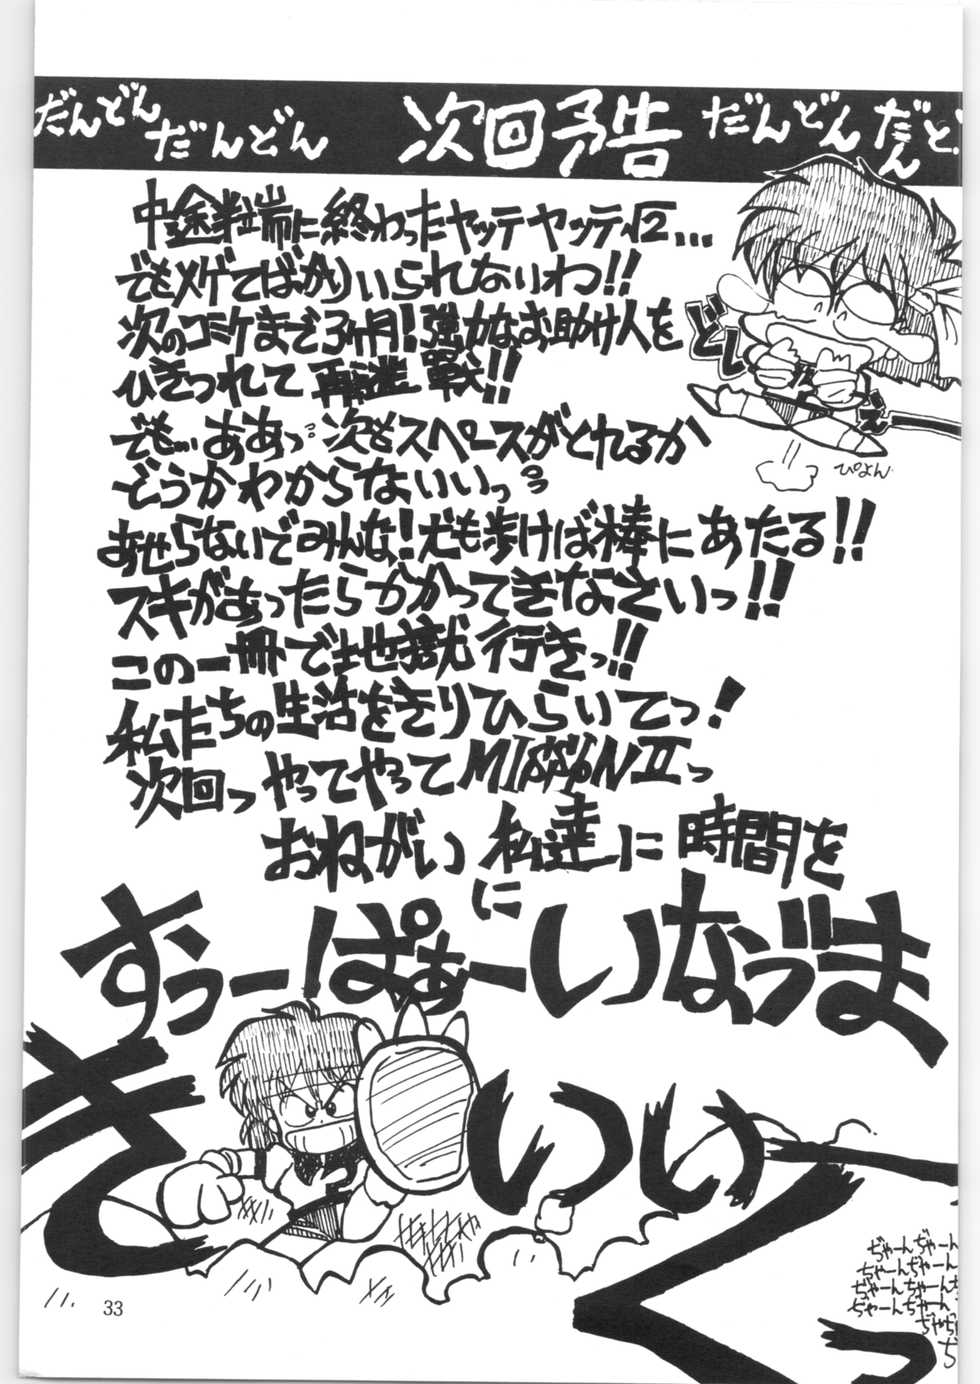 だんどん
だんどん
次回予告
だんどん
だんど
中途半端に終わったヤッテヤッテ√2...
でもメゲてばかりいられないわ!!
次のコミケまで3ヶ月!強力なお助け人を
ひきつれて再謎戦!!
でも…ああっ次もスペースがとれるか
どうかわからないいっ
あせらないでみんな!犬も歩けば棒にあたる!!
スキがあったらかかってきなさいっ!!
この一冊で地獄行きっ!!
私たちの生活をきりひらいてっ!
次回っやってやってMISSION Ⅱっ
おねがい私達に時間を
に
すぅーぱぁーいなづま
きいいくっ
どし
え
ぴょん
ぢゃーんぢゃーん
ぢゃーんぢゃーん
ぢゃーんぢゃーん
ぢゃーんぢゃーん
ぢゃぢ
ぢ
33